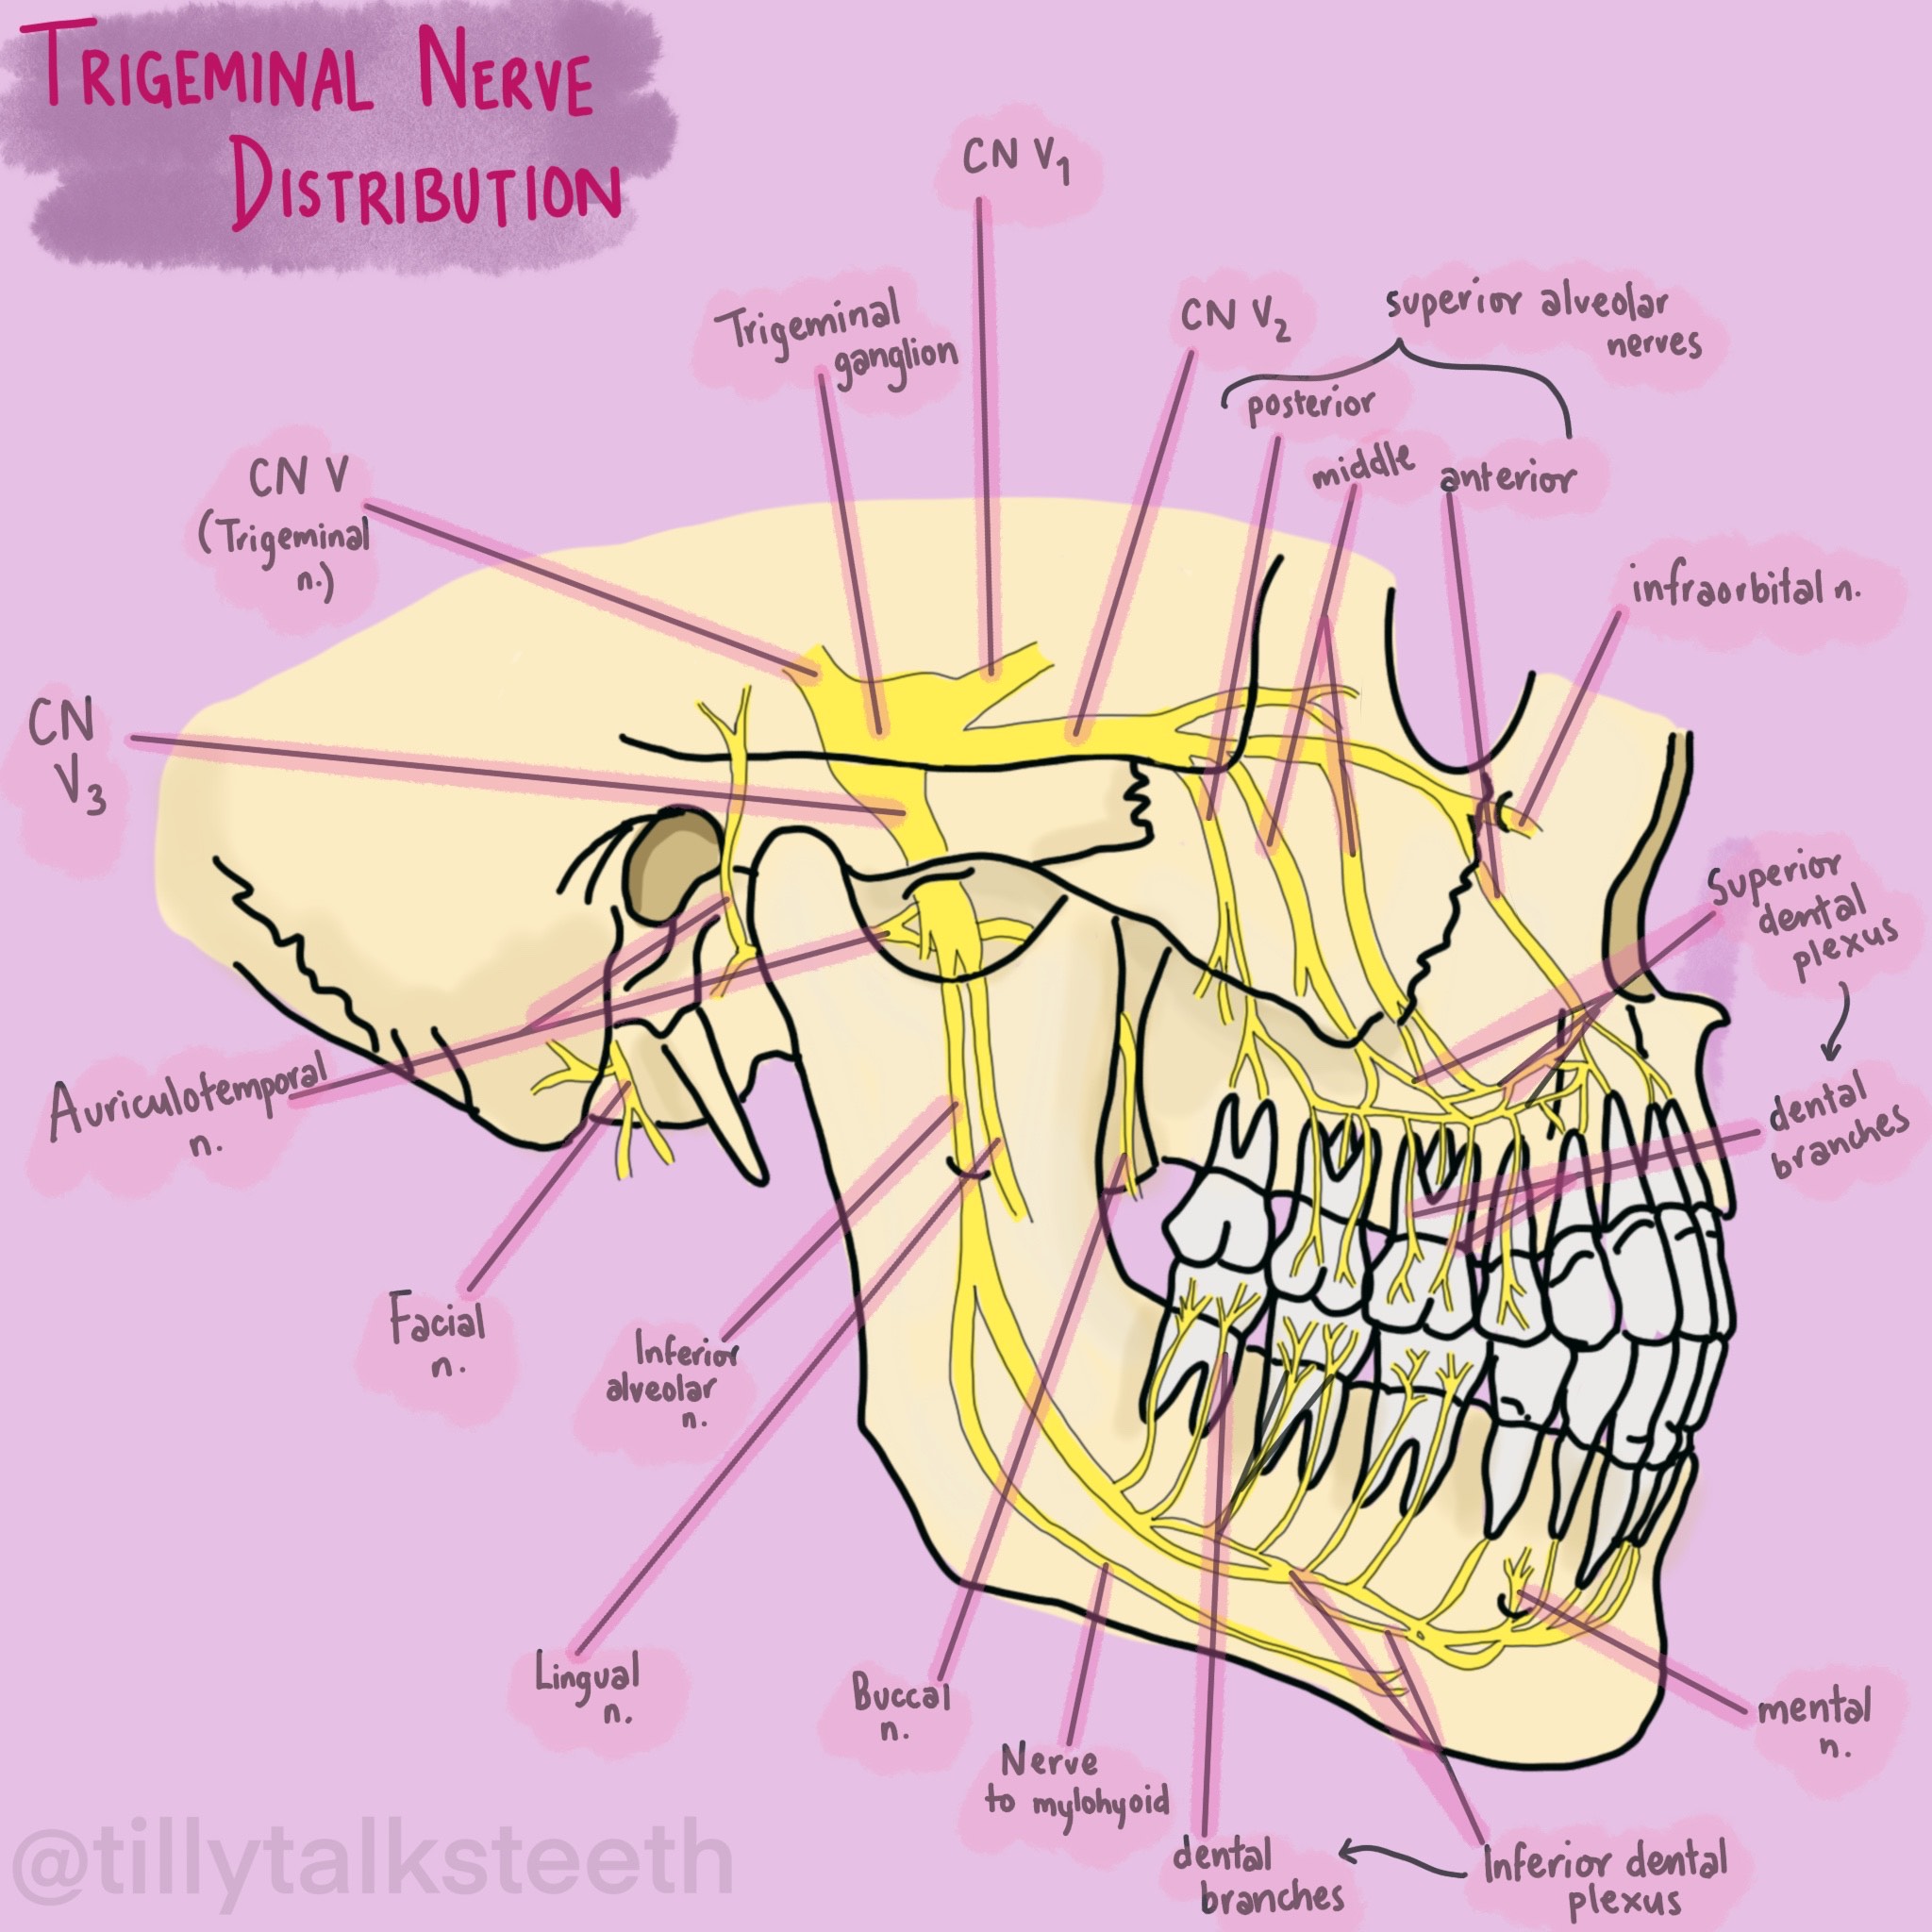 TRIGEMINAL NERVE
DISTRIBUTION
CN V1
Trigeminal
ganglion
CN V2
superior alveolar
nerves
posterior
middle
anterior
CN V
(Trigeminal
n.)
infraorbital n.
CN
V3
Superior
dental
plexus
dental
branches
Auriculotemporal
n.
Facial
n.
Inferior
alveolar
n.
Lingual
n.
Buccal
n.
Nerve
to mylohyoid
mental
n.
dental
branches
Inferior dental
plexus
@tillytalksteeth